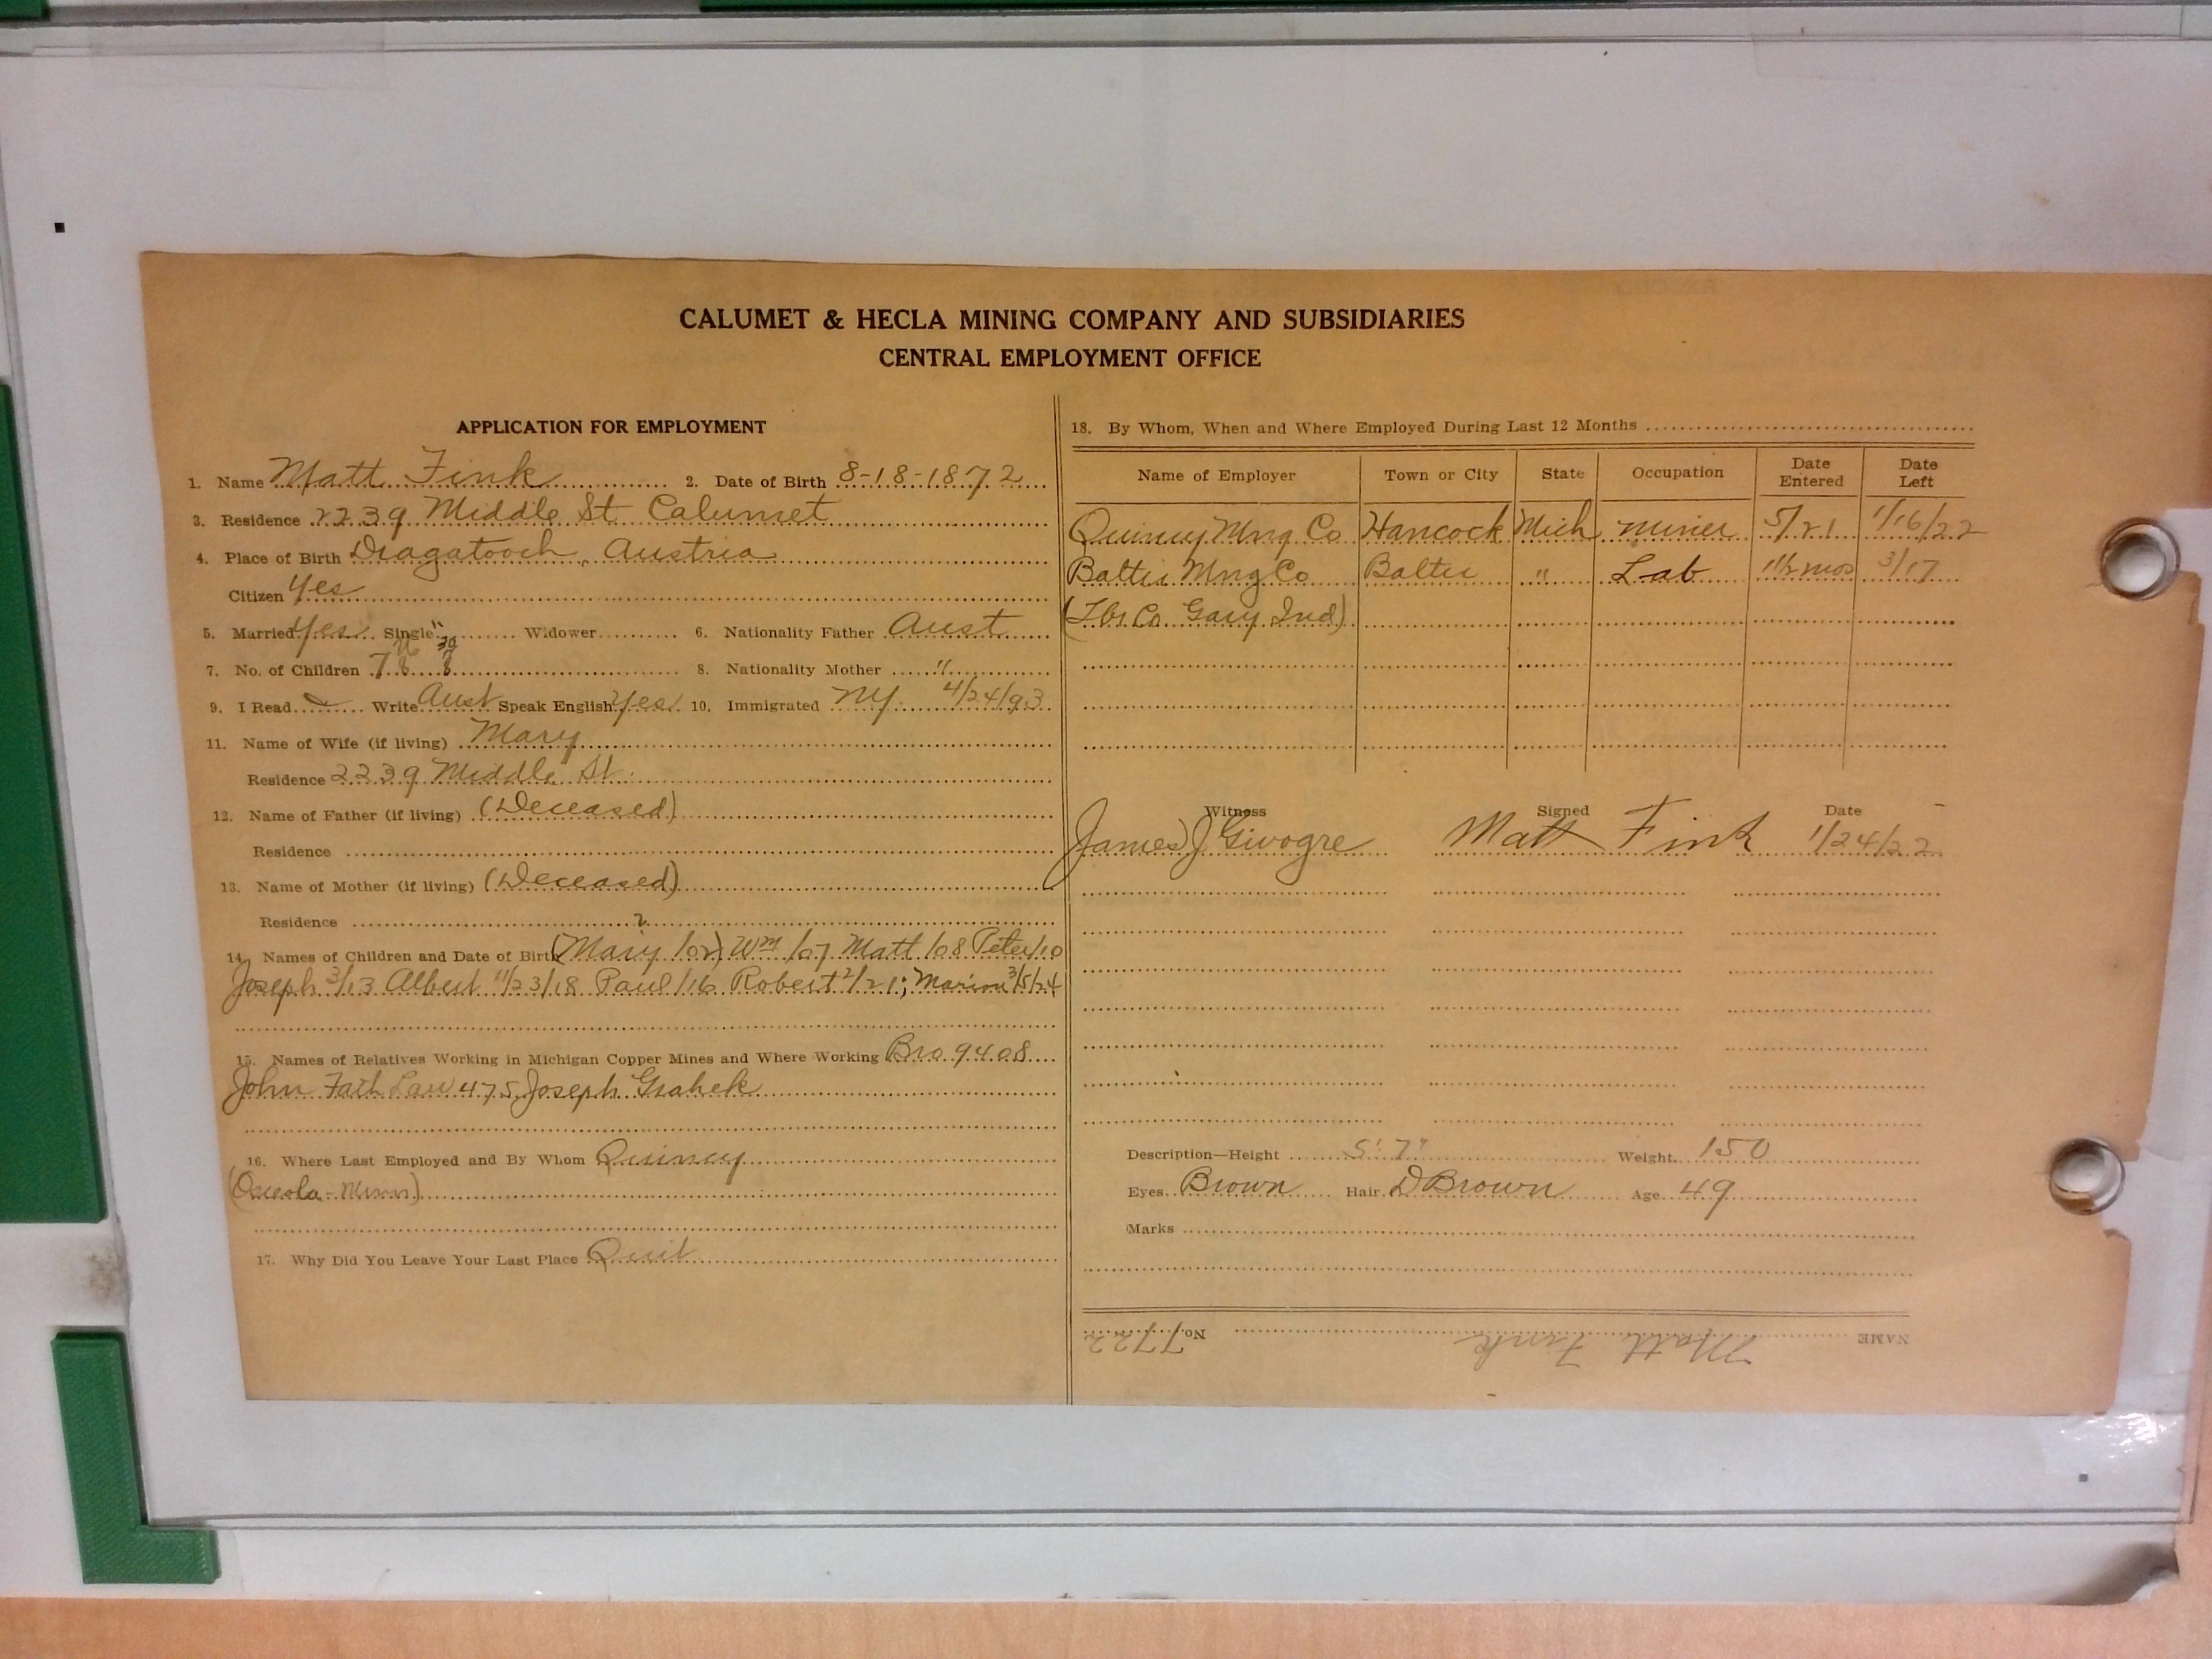 CALUMET & HECLA MINING COMPANY AND SUBSIDIARIES
CENTRAL EMPLOYMENT OFFICE
APPLICATION FOR EMPLOYMENT
1. Name Matt Fink 2. Date of Birth 8-18-1872
3. Residence 2239 Middle St Calumet
4. Place of Birth Dragatooch, Austria
Citizen Yes
5. Married Yes Single " Widower 6. Nationality Father Aust
7. No. of Children 7 8 8 8. Nationality Mother "
9. I Read Write Aust Speak English Yes 10. Immigrated NY. 4/24/93
11. Name of Wife (if living) Mary
Residence 2239 Middle St.
12. Name of Father (if living) (Deceased)
Residence
13. Name of Mother (if living) (Deceased)
Residence
14. Names of Children and Date of Birth (Mary /02) Wm /07 Matt /08 Peter /10
Joseph 3/13 Albert 11/23/18 Paul /16 Robert 2/21; Marion 3/5/24
15. Names of Relatives Working in Michigan Copper Mines and Where Working Bro 9408
John Fath Law 475 Joseph Grahek
16. Where Last Employed and By Whom Quincy
(Osceola-Minn)
17. Why Did You Leave Your Last Place Quit
18. By Whom, When and Where Employed During Last 12 Months
Name of Employer Town or City State Occupation Date Entered Date Left
Quincy Mng Co Hancock Mich miner 5/21 1/16/22
Baltic Mng Co Baltic " Lab 1 1/2 mos 3/17
(Co Gary Ind)
Witness Signed Date
James J Givogre Matt Fink 1/24/22
Description—Height 5' 7" Weight 150
Eyes Brown Hair D Brown Age 49
Marks
NAME Matt Fink No. 7722